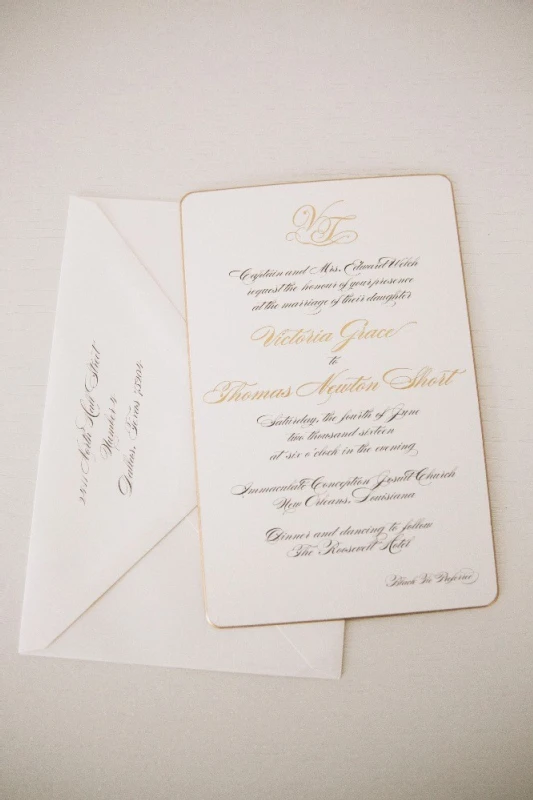 VT
Captain and Mrs. Edward Welch
request the honour of your presence
at the marriage of their daughter
Victoria Grace
to
Thomas Newton Short
Saturday, the fourth of June
two thousand sixteen
at six o'clock in the evening
Immaculate Conception Jesuit Church
New Orleans, Louisiana
Dinner and dancing to follow
The Roosevelt Hotel
Black Tie Preferred
North Street
Number
Dallas, Texas